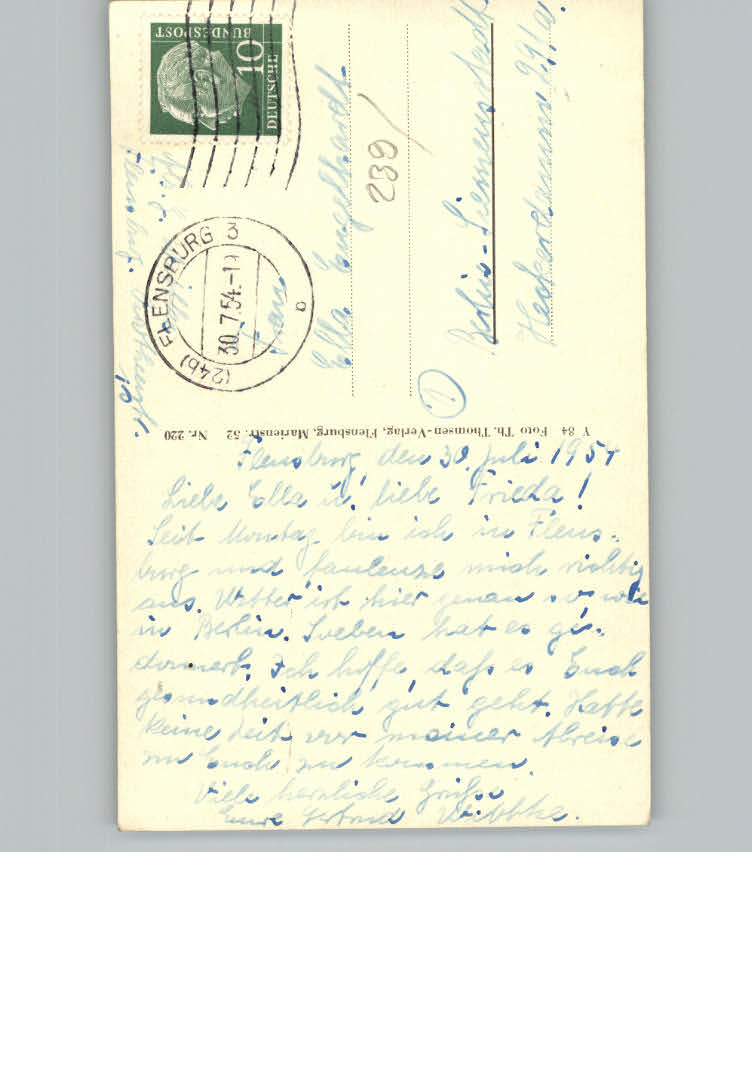 DEUTSCHE
BUNDESPOST
10
(24b) FLENSBURG 3
30.7.54.-19
c
Frau
Ella Engelhardt
239/
1
Berlin-Siemensstadt
Heckerdamm 291a
Y 84 Foto Th. Thomsen-Verlag, Flensburg, Marienstr. 52 Nr. 220
Flensburg, den 30. Juli 1954
Liebe Ella u. liebe Frieda!
Seit Montag bin ich in Flens-
burg und faulenze mich richtig
aus. Wetter ist hier genau so wie
in Berlin. Soeben hat es ge-
donnert. Ich hoffe, daß es Euch
gesundheitlich gut geht. Hatte
keine Zeit vor meiner Abreise
zu Euch zu kommen.
Viele herzliche Grüße
Eure